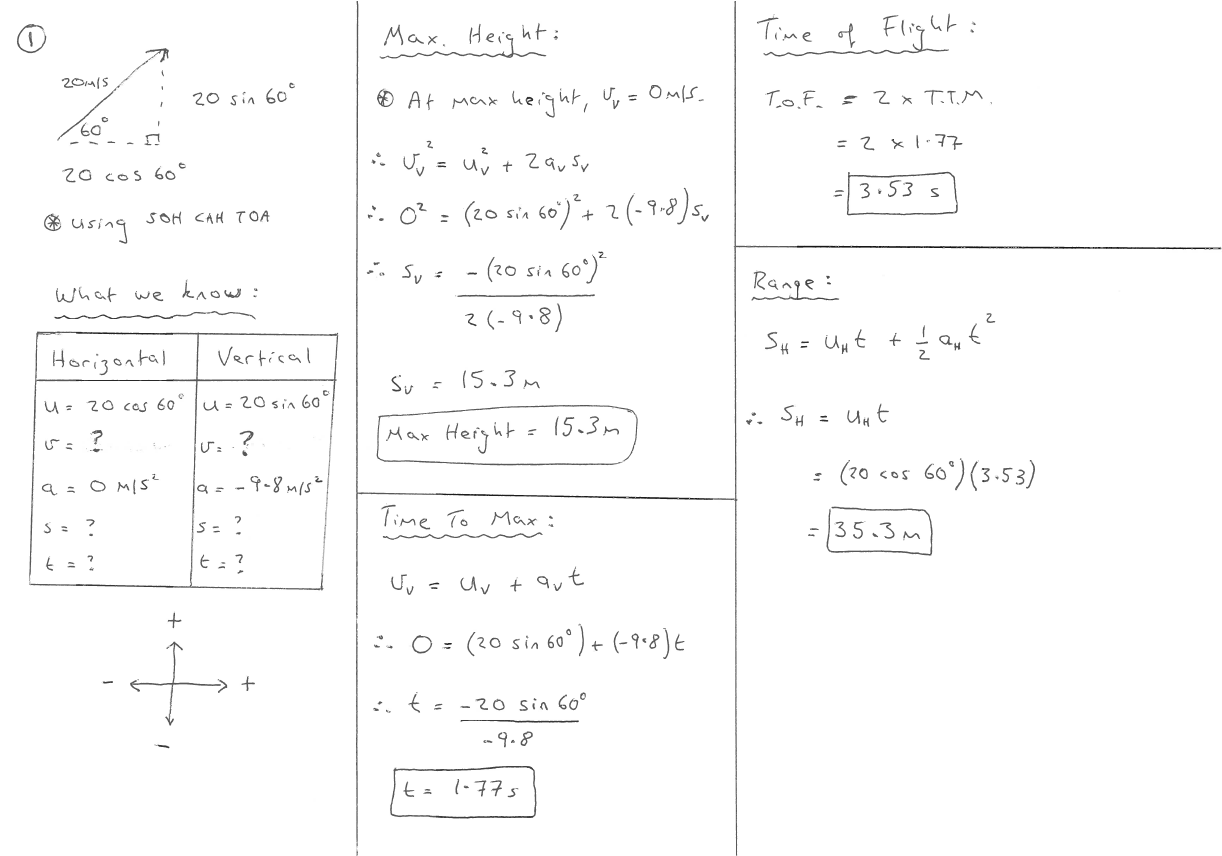 ①
20m/s
20 sin 60°
60°
20 cos 60°
⊛ using SOH CAH TOA
What we know:
Horizontal Vertical
u = 20 cos 60° u = 20 sin 60°
v = ? v = ?
a = 0 m/s² a = -9.8 m/s²
s = ? s = ?
t = ? t = ?
+
- +
-
Max. Height:
⊛ At max height, v_v = 0 m/s.
∴ v_v² = u_v² + 2a_v s_v
∴ 0² = (20 sin 60°)² + 2(-9.8)s_v
∴ s_v = -(20 sin 60°)²
2(-9.8)
s_v = 15.3 m
Max Height = 15.3 m
Time To Max:
v_v = u_v + a_v t
∴ 0 = (20 sin 60°) + (-9.8)t
∴ t = -20 sin 60°
-9.8
t = 1.77 s
Time of Flight:
T.O.F. = 2 x T.T.M.
= 2 x 1.77
= 3.53 s
Range:
s_H = u_H t + 1/2 a_H t²
∴ s_H = u_H t
= (20 cos 60°)(3.53)
= 35.3 m